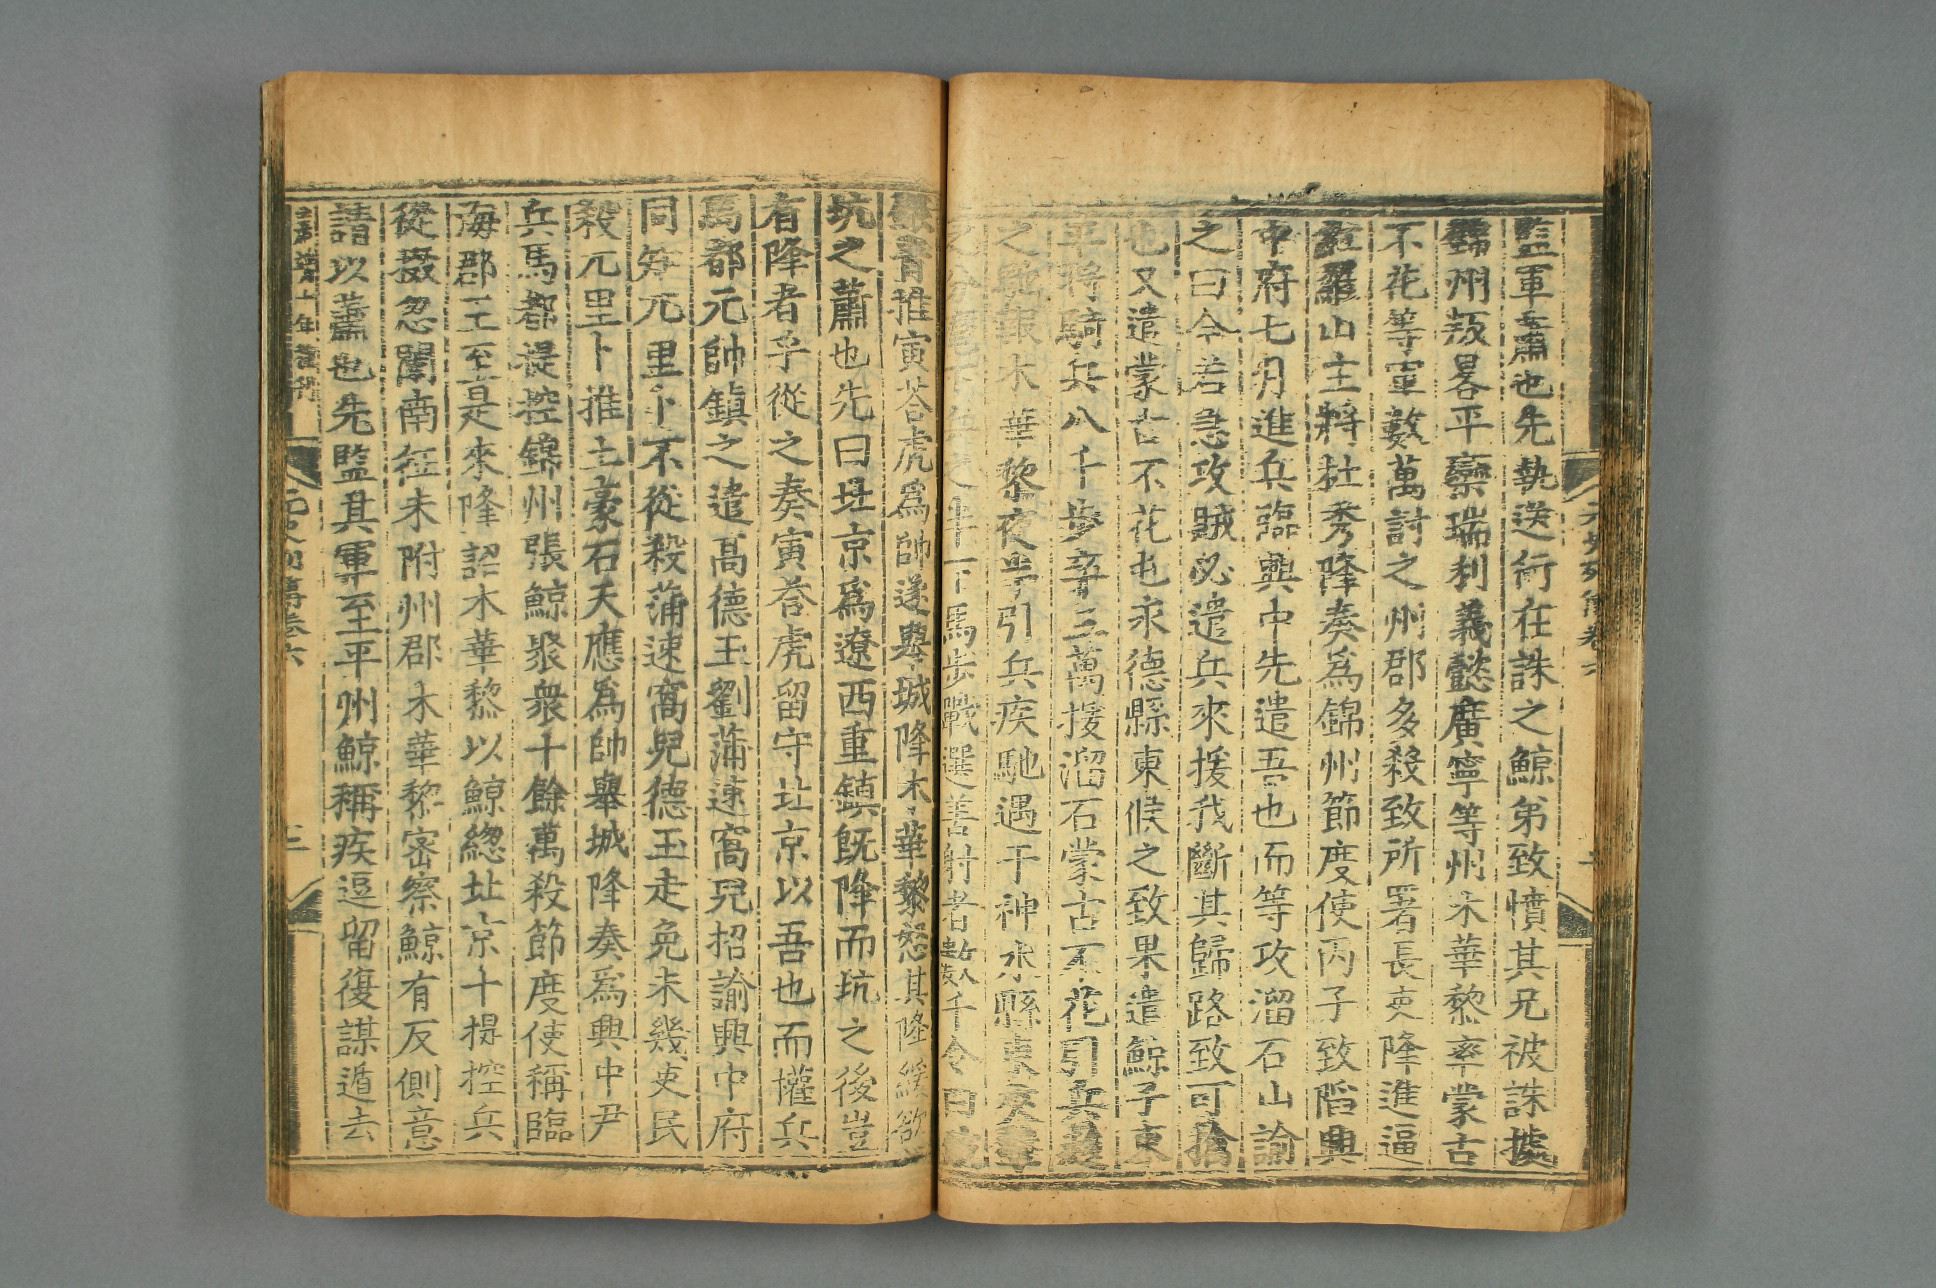 元史列傳卷六
監軍蕭也先執送行在誅之鯨弟致憤其兄被誅據
錦州叛畧平欒瑞利義懿廣寧等州木華黎率蒙古
不花等軍數萬討之州郡多殺致所署長吏降進逼
紅羅山主將杜秀降奏爲錦州節度使丙子致陷興
中府七月進兵臨興中先遣吾也而等攻溜石山諭
之曰今若急攻賊必遣兵來援我斷其歸路致可擒
也又遣蒙古不花屯永德縣東候之致果遣鯨子東
平將騎兵八千步卒三萬援溜石蒙古不花引兵趨
之馳報木華黎夜半引兵疾馳遇于神水縣東夾擊
之分麾下兵之半下馬步戰選善射者數千令曰賊
銀青推寅荅虎爲帥遂舉城降木華黎怒其降緩欲
坑之蕭也先曰北京爲遼西重鎮既降而坑之後豈
有降者乎從之奏寅荅虎留守北京以吾也而權兵
馬都元帥鎮之遣高德玉劉蒲速窩兒招諭興中府
同知兀里卜不從殺蒲速窩兒德玉走免未幾吏民
殺兀里卜推土豪石天應爲帥舉城降奏爲興中尹
兵馬都提控錦州張鯨聚衆十餘萬殺節度使稱臨
海郡王至是來降詔木華黎以鯨緫北京十提控兵
從掇忽闌南征未附州郡木華黎密察鯨有反側意
請以蕭也先監其軍至平州鯨稱疾逗留復謀遁去
嘉靖十年補刊 元史列傳卷六 二